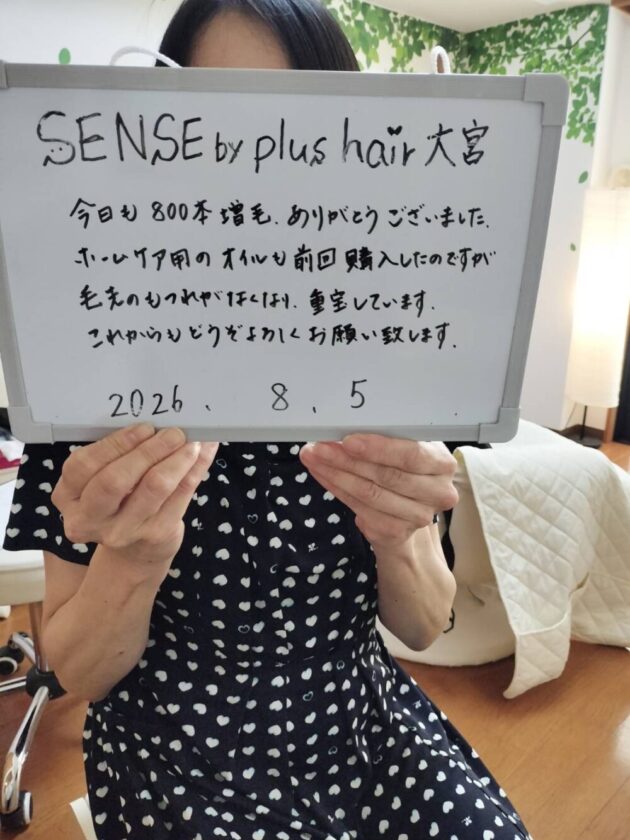 SENSE by plus hair 大宮
今日も 800本 増毛、ありがとうございました。
ホームケア用のオイルも前回購入したのですが
毛先のもつれがなくなり、重宝しています。
これからもどうぞよろしくお願い致します。
2026. 8. 5